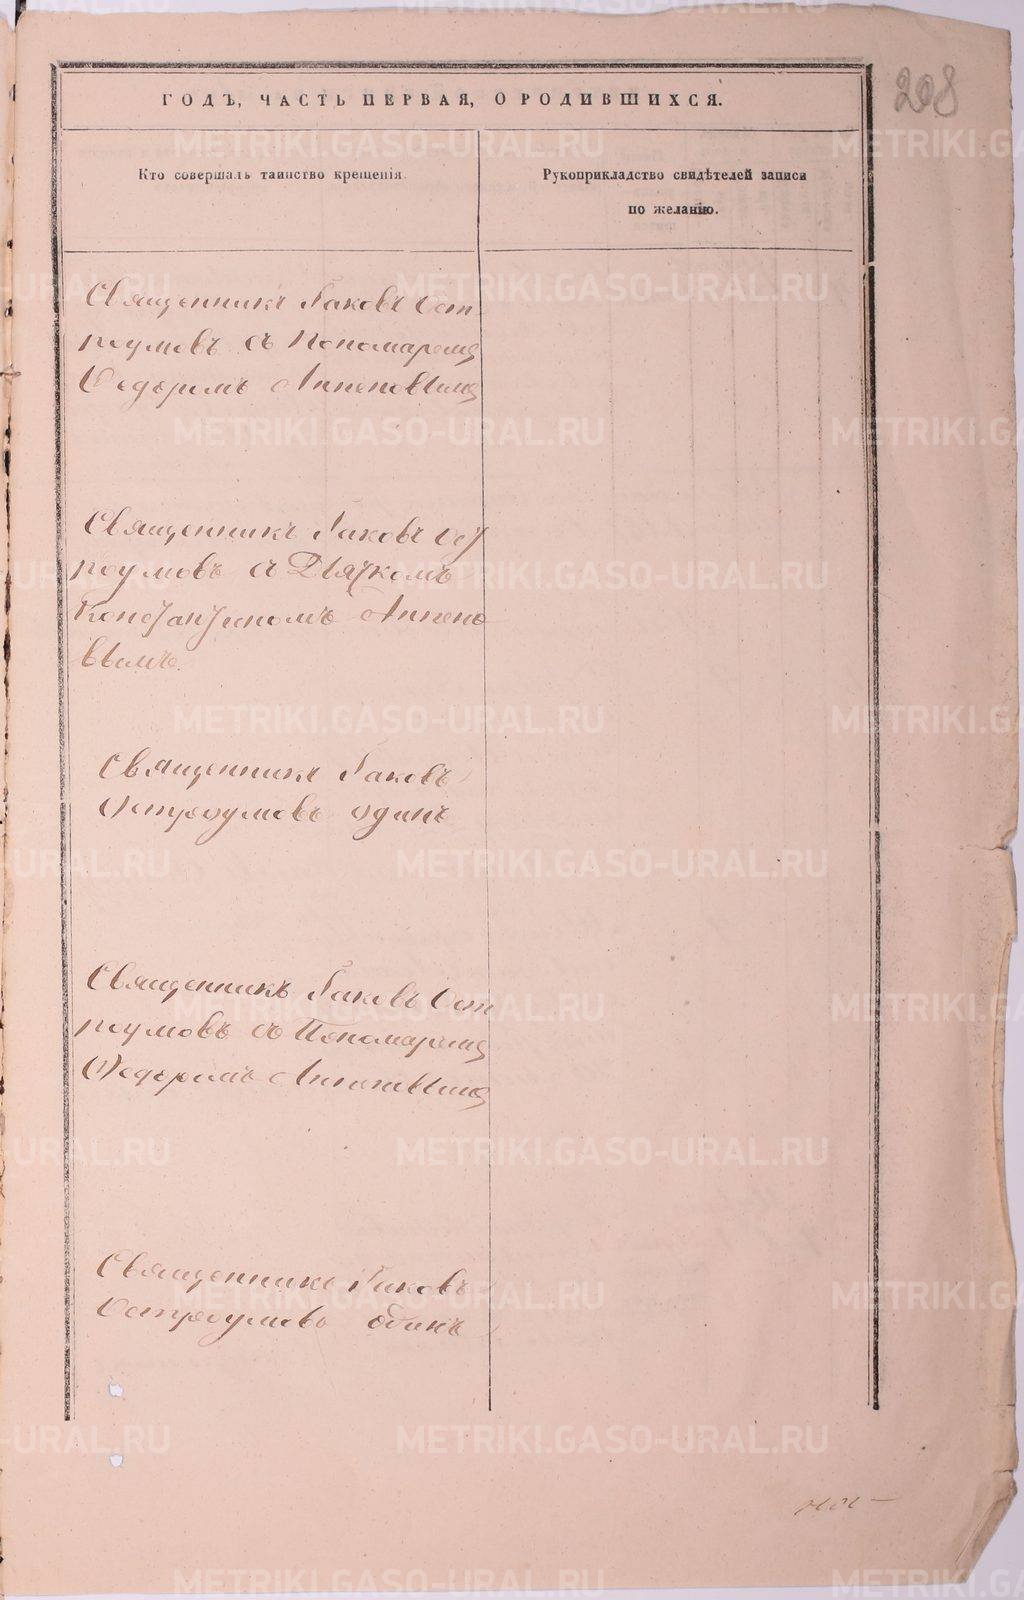 208
ГОДЪ, ЧАСТЬ ПЕРВАЯ, О РОДИВШИХСЯ.
Кто совершалъ таинство крещенія.
Рукоприкладство свидѣтелей записи
по желанію.
Священникъ Іаковъ Ост
роумовъ съ Пономаремъ
Ѳедоромъ
Священникъ Іаковъ Ост
роумовъ съ Дьячкомъ
Константиномъ
вымъ
Священникъ Іаковъ
Остроумовъ одинъ
Священникъ Іаковъ Ост
роумовъ съ Пономаремъ
Ѳедоромъ
Священникъ Іаковъ
Остроумовъ одинъ
METRIKI.GASO-URAL.RU